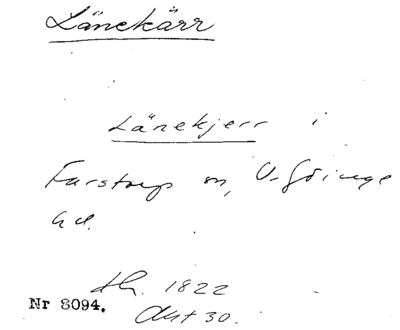 Länekärr
Länekjerr i
Farstorp sn, V. Göinge
hd.
Lh. 1822
Nr 8094.
Akt 30.